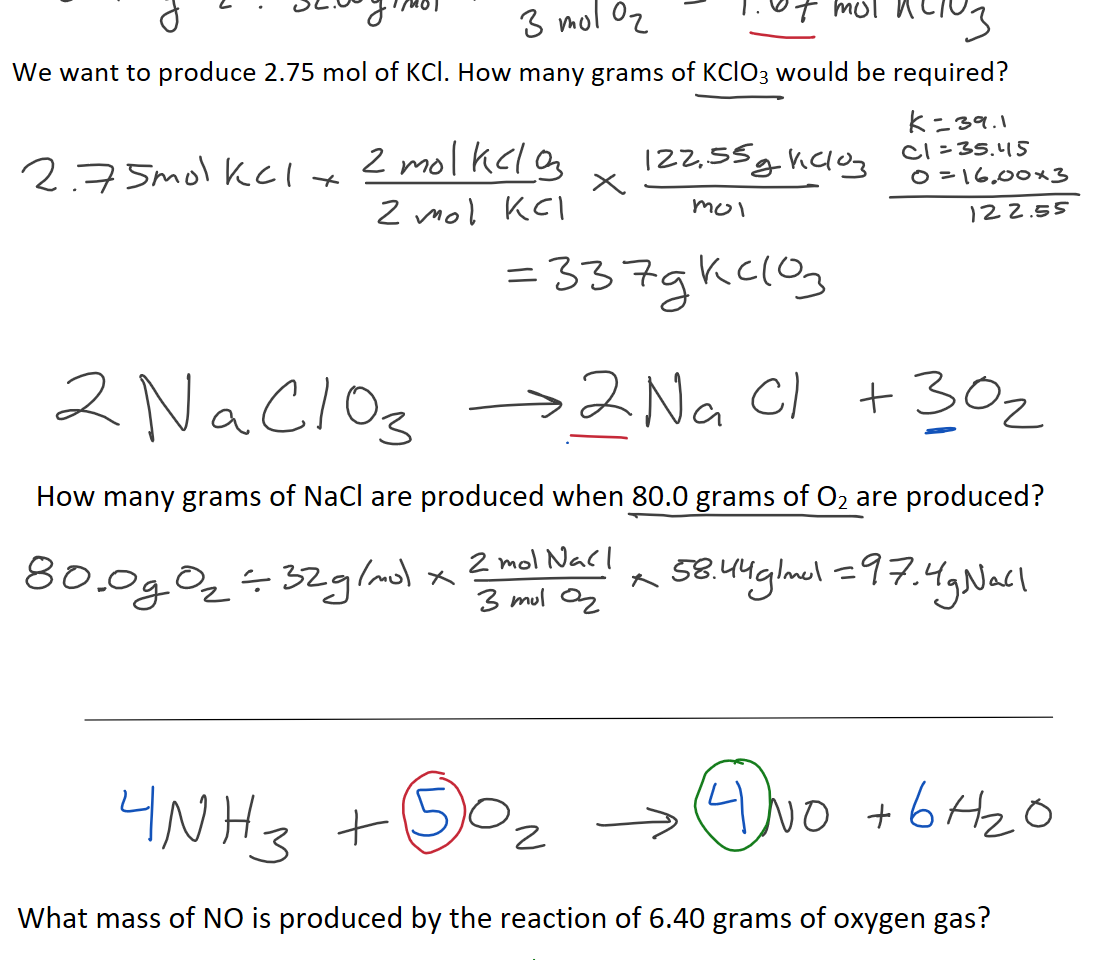 3 mol O₂
We want to produce 2.75 mol of KCl. How many grams of KClO₃ would be required?
K = 39.1
Cl = 35.45
O = 16.00 x 3
122.55
2.75 mol KCl x 2 mol KClO₃ / 2 mol KCl x 122.55 g KClO₃ / mol
= 337 g KClO₃
2 NaClO₃ → 2 NaCl + 3O₂
How many grams of NaCl are produced when 80.0 grams of O₂ are produced?
80.0g O₂ ÷ 32g/mol x 2 mol NaCl / 3 mol O₂ x 58.44g/mol = 97.4g NaCl
4NH₃ + 5O₂ → 4NO + 6H₂O
What mass of NO is produced by the reaction of 6.40 grams of oxygen gas?